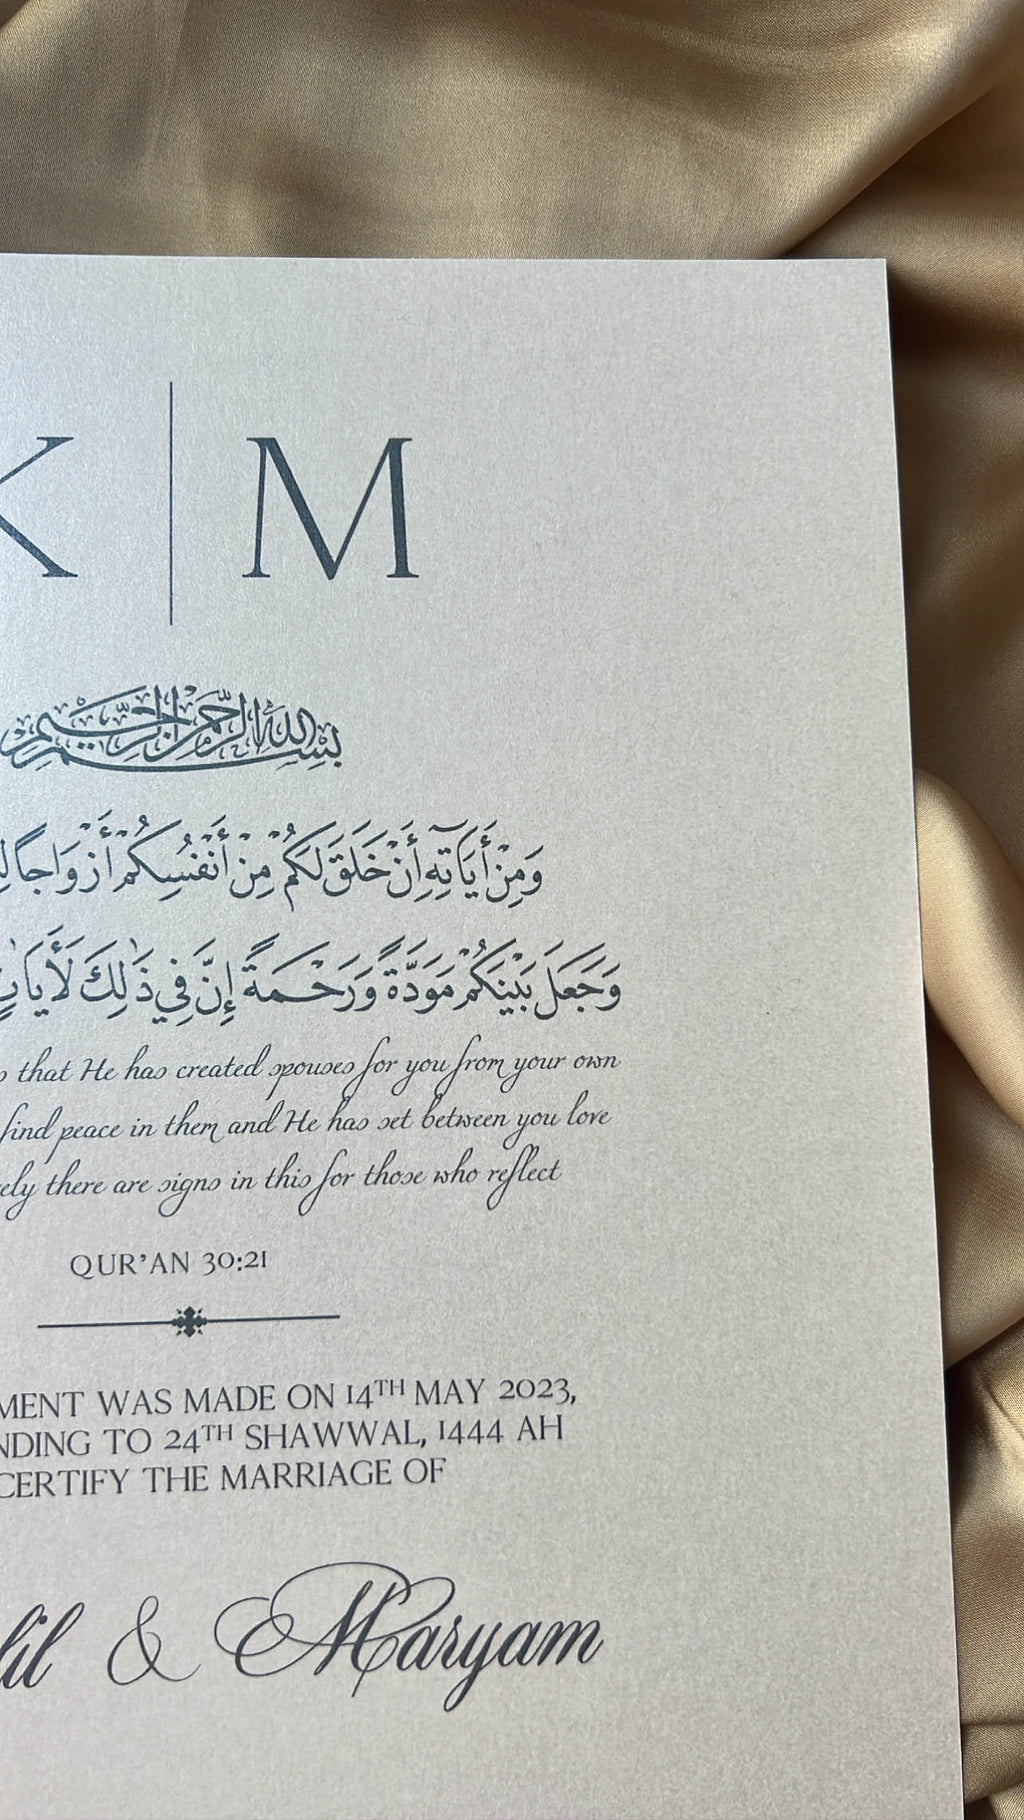 K | M
بِسْمِ اللهِ الرَّحْمٰنِ الرَّحِيمِ
وَمِنْ أَيَاتِهِ أَنْ خَلَقَ لَكُمْ مِنْ أَنْفُسِكُمْ أَزْوَاجًا
وَجَعَلَ بَيْنَكُمْ مَوَدَّةً وَرَحْمَةً إِنَّ فِي ذَٰلِكَ لَأَيَاتٍ
that He has created spouses for you from your own
find peace in them and He has set between you love
ely there are signs in this for those who reflect
QUR'AN 30:21
MENT WAS MADE ON 14TH MAY 2023,
NDING TO 24TH SHAWWAL, 1444 AH
CERTIFY THE MARRIAGE OF
lil & Maryam